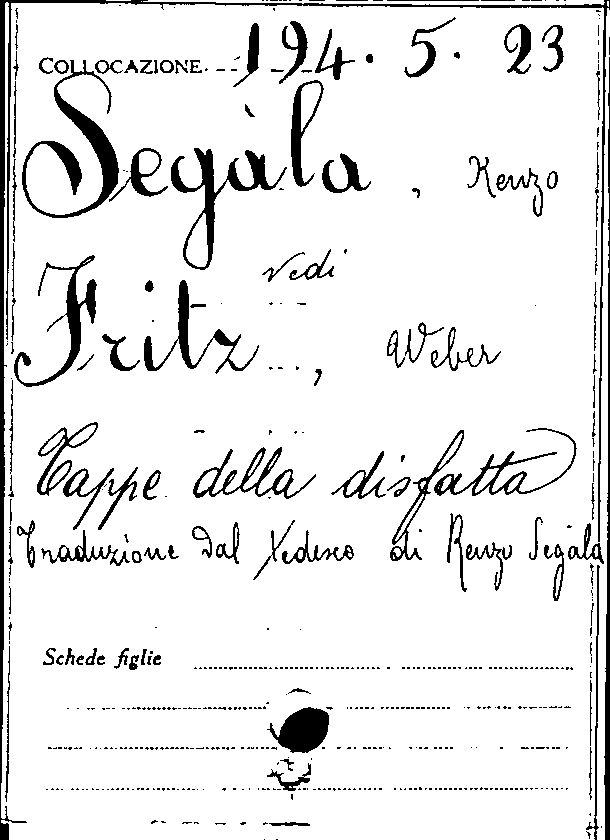 COLLOCAZIONE 194. 5. 23
Segàla, Renzo
vedi
Fritz, Weber
Tappe della disfatta
Traduzione dal Tedesco di Renzo Segàla
Schede figlie